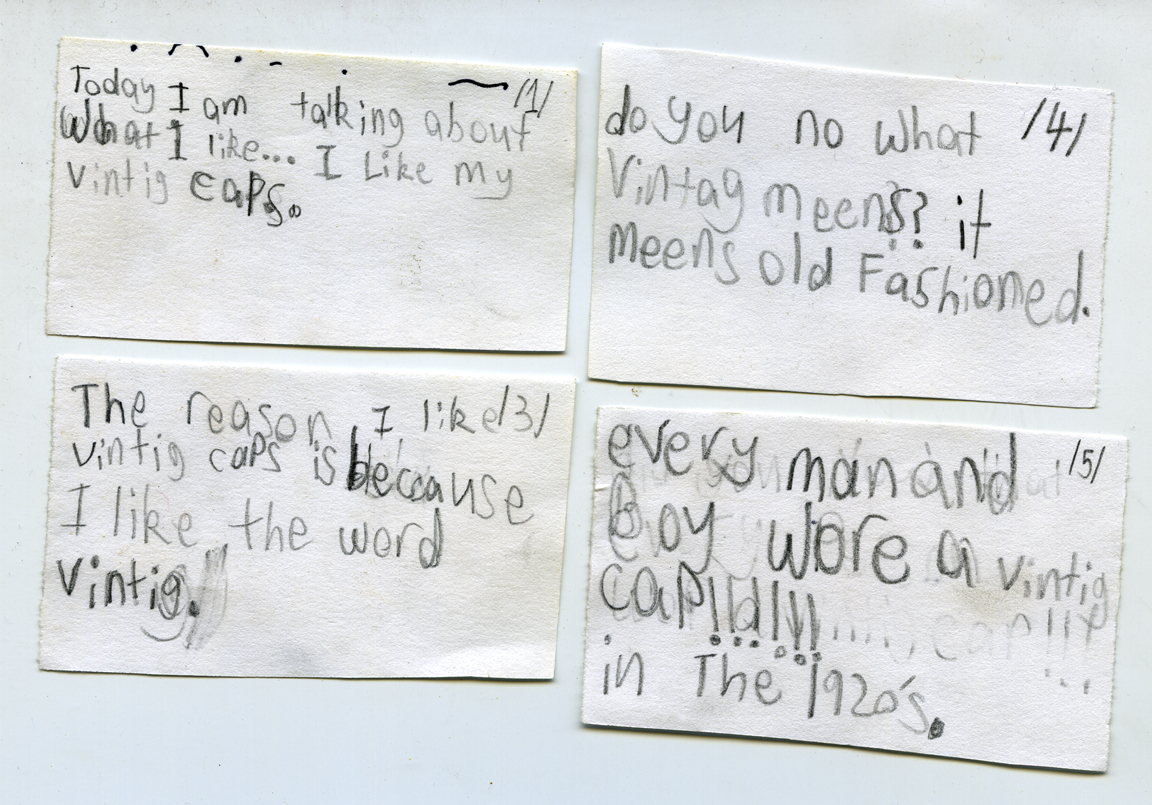 Today I am talking about /1/
What I like... I Like my
vintig caps.
The reason I like /3/
vintig caps is because
I like the word
vintig.
do you no what /4/
Vintag meens? it
meens old Fashioned.
every man and /5/
Boy wore a vintig
cap!!!!!!
in The 1920's.